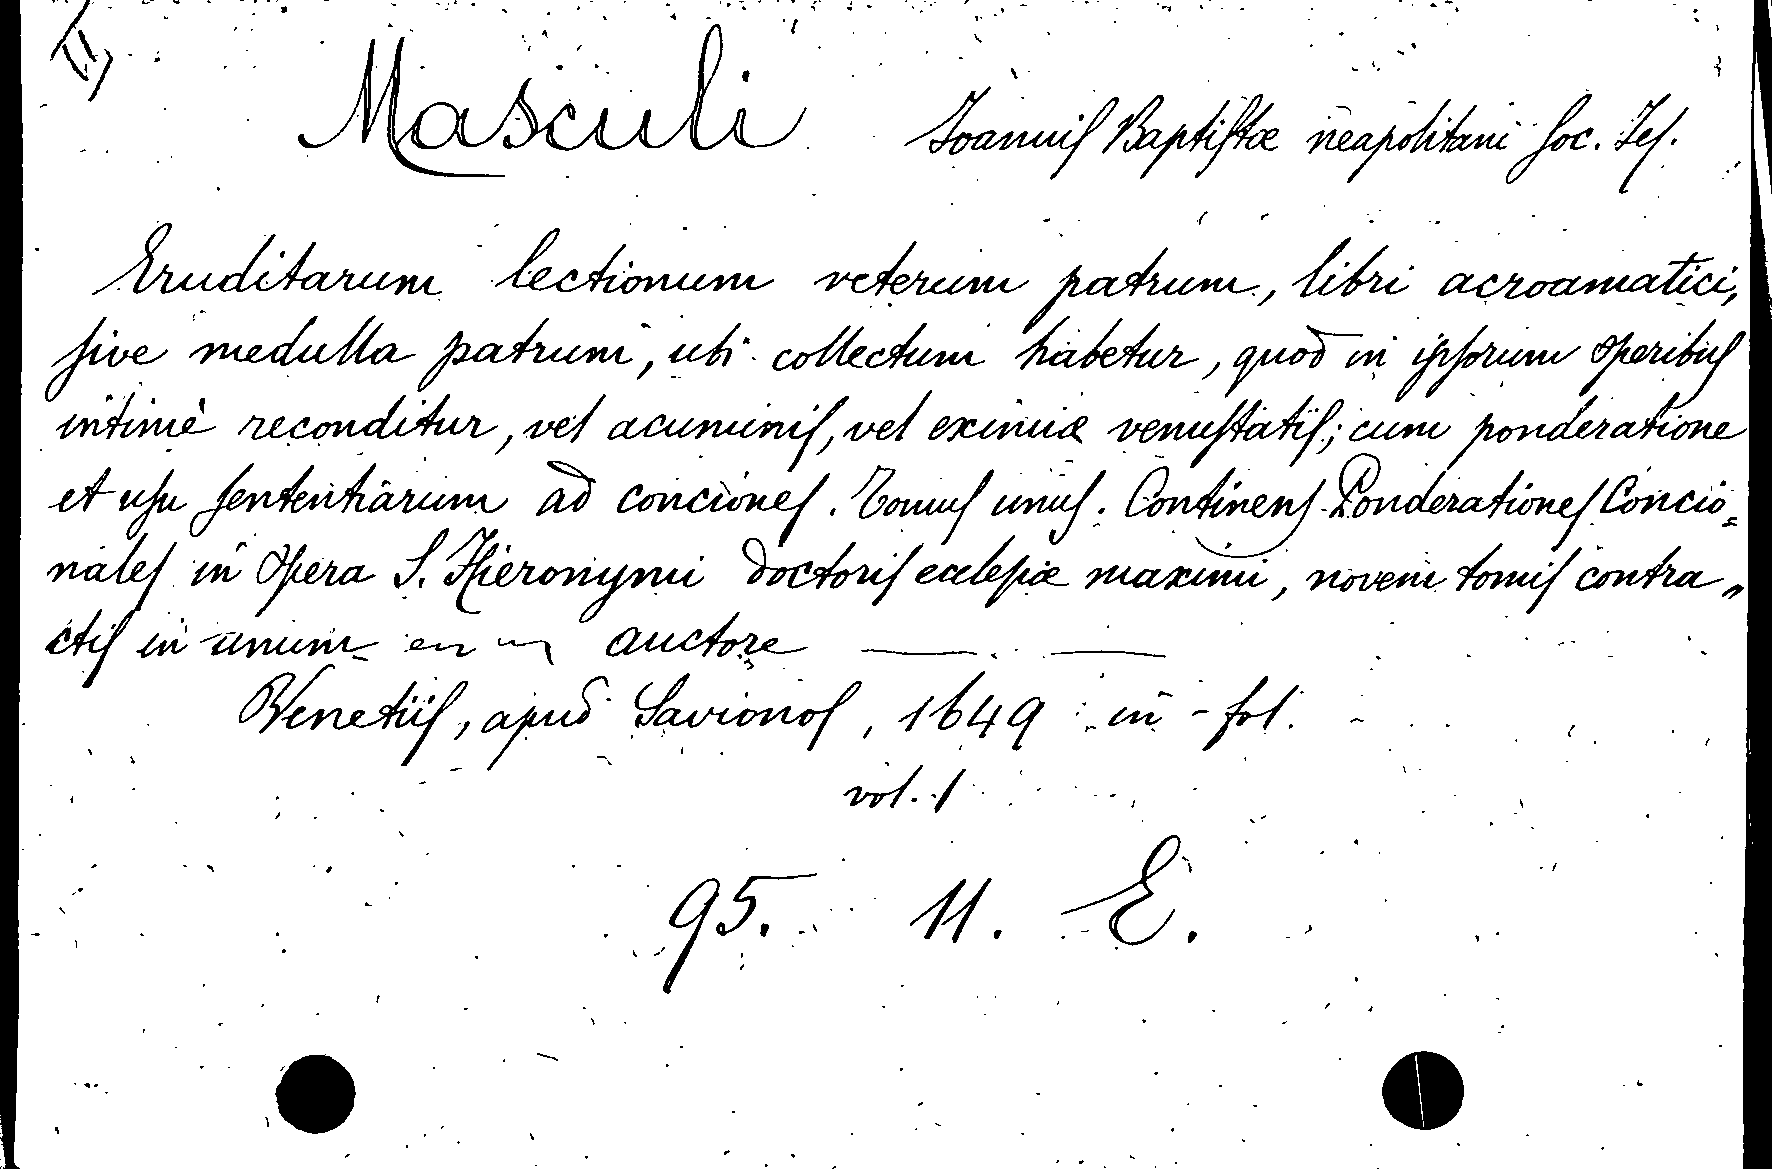 Masculi Joannis Baptistæ neapolitani Soc. Jes.
Eruditarum lectionum veterum patrum, libri acroamatici,
sive medulla patrum, ubi collectum habetur, quod in ipsorum operibus
intimè reconditur, vel acuminis, vel eximiæ venustatis; cum ponderatione
et usu sententiarum ad conciones. Tomus unus. Continens Ponderationes Concio=
nales in opera S. Hieronymi doctoris ecclesiæ maximi, novem tomis contra„
ctis in unum auctore
Venetiis, apud Savionos, 1649 in-fol.
vol. 1
95. 11. E.